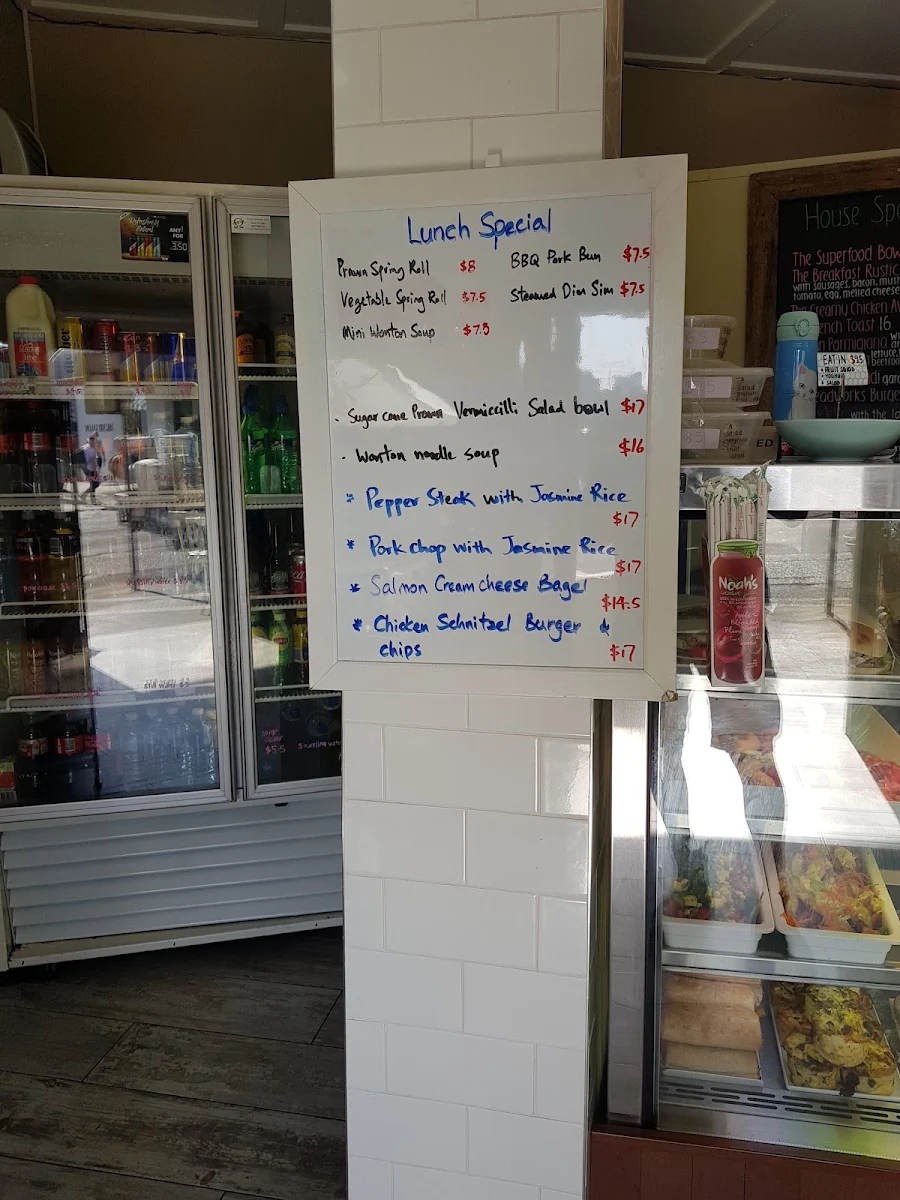 Lunch Special
Prawn Spring Roll $8
BBQ Pork Bun $7.5
Vegetable Spring Roll $7.5
Steamed Dim Sim $7.5
Mini Wonton Soup $7.5
. Sugar cane Prawn Vermiccilli Salad bowl $17
. Wonton noodle soup $16
* Pepper Steak with Jasmine Rice
$17
* Pork chop with Jasmine Rice
$17
* Salmon Cream cheese Bagel
$14.5
* Chicken Schnitzel Burger &
chips $17
Refreshingly
Natural
ANY 1
FOR
3.50
House Spe
The Superfood Bow
The Breakfast Rustic
with sausages, bacon, mus
tomato, egg, melted cheese
Creamy Chicken A
ench Toast 16
Parmigiana
lettuce
EAT IN
Burge
with the lo
ED
Noah's
$5.5